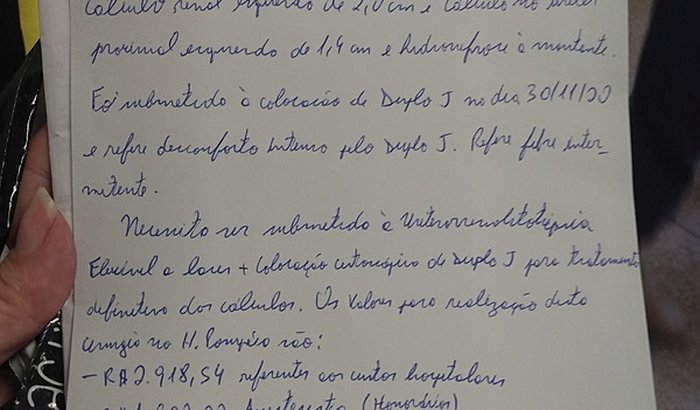 Cálculo renal esquerdo de 2,0 cm e cálculo no ureter
proximal esquerdo de 1,4 cm e hidronefrose à montante.
Foi submetido à colocação de Duplo J no dia 30/11/20
e refere desconforto intenso pelo Duplo J. Refere febre inter-
mitente.
Necessito ser submetido à Ureterorrenolitotripsia
Flexível a laser + colocação cistoscópica de Duplo J para tratamento
definitivo dos cálculos. Os valores para realização desta
cirurgia no H. Pompéia são:
- R$ 2.918,54 referentes aos custos hospitalares
Anestesista (Honorários)